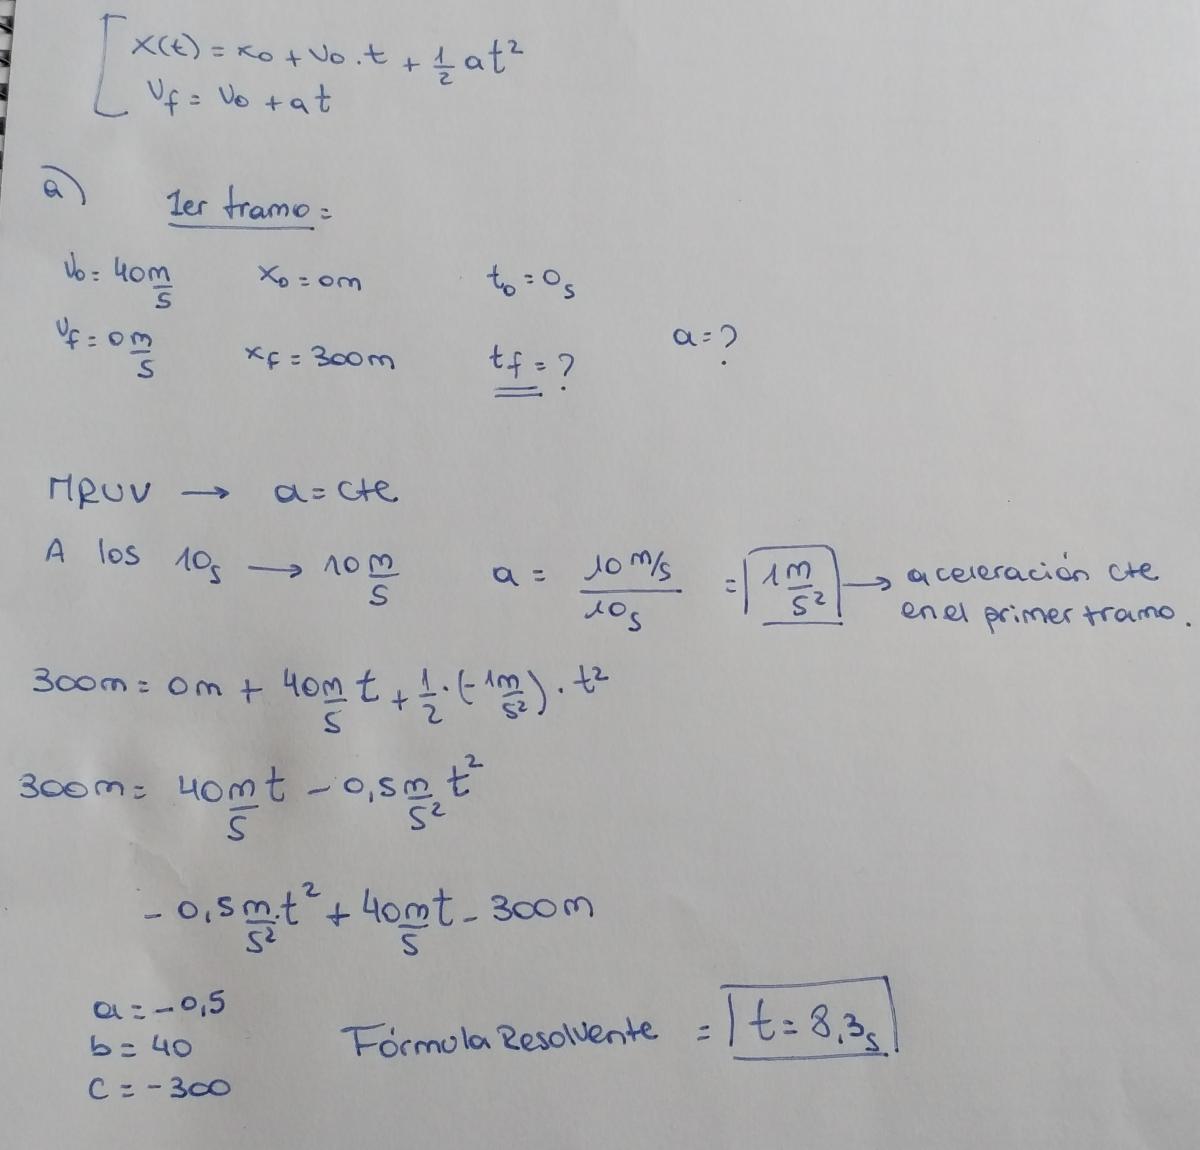 x(t) = x₀ + v₀ . t + 1/2 at²
Vf = V₀ + at
a)
1er tramo =
V₀ = 40 m/s    x₀ = 0m    t₀ = 0s
Vf = 0 m/s    xf = 300m    tf = ?    a = ?
MRUV → a = cte
A los 10s → 10 m/s    a = 10 m/s / 10s = 1 m/s² → aceleración cte
en el primer tramo.
300m = 0m + 40 m/s t + 1/2 . (-1 m/s²) . t²
300m = 40 m/s t - 0,5 m/s² t²
- 0,5 m/s² . t² + 40 m/s t - 300m
a = -0,5
b = 40    Fórmula Resolvente = t = 8,3s
c = -300